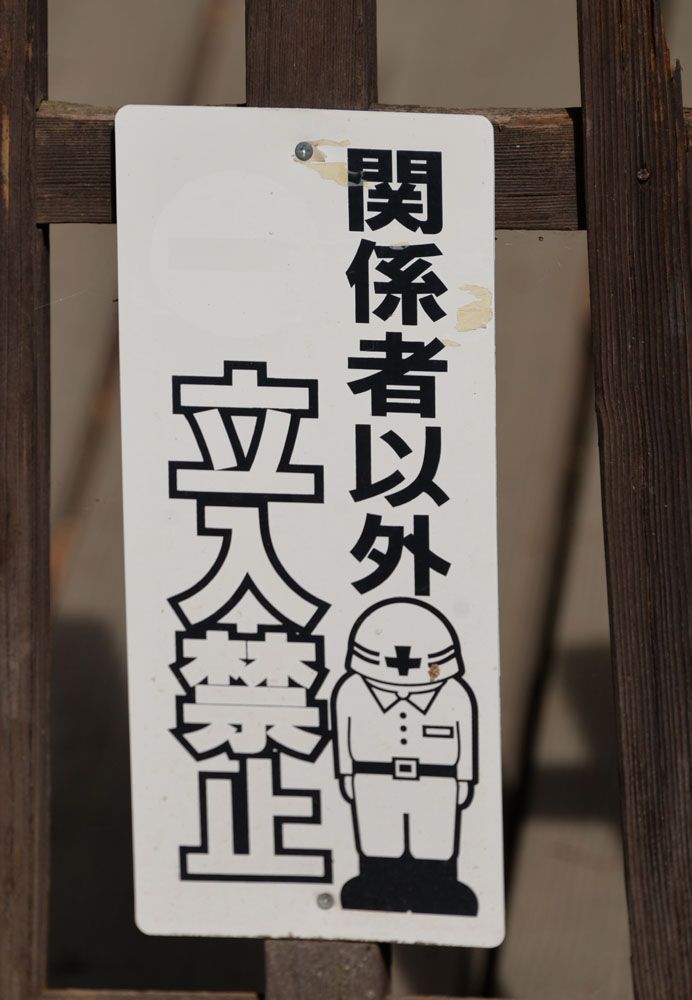 関係者以外
立入禁止